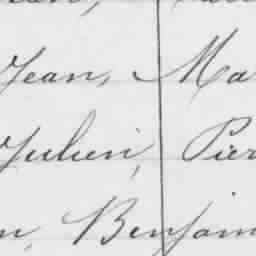 Jean, Ma
Julien, Pier
n, Benjam